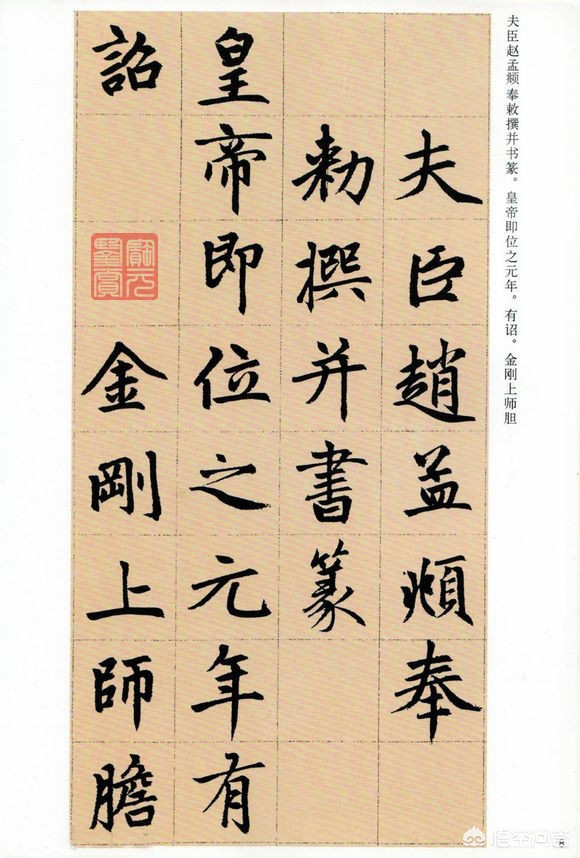 夫臣赵孟頫奉敕撰并书篆。皇帝即位之元年。有诏。金刚上师胆
夫臣趙孟頫奉
勅撰并書篆
皇帝即位之元年有
詔金剛上師膽
悟空问答